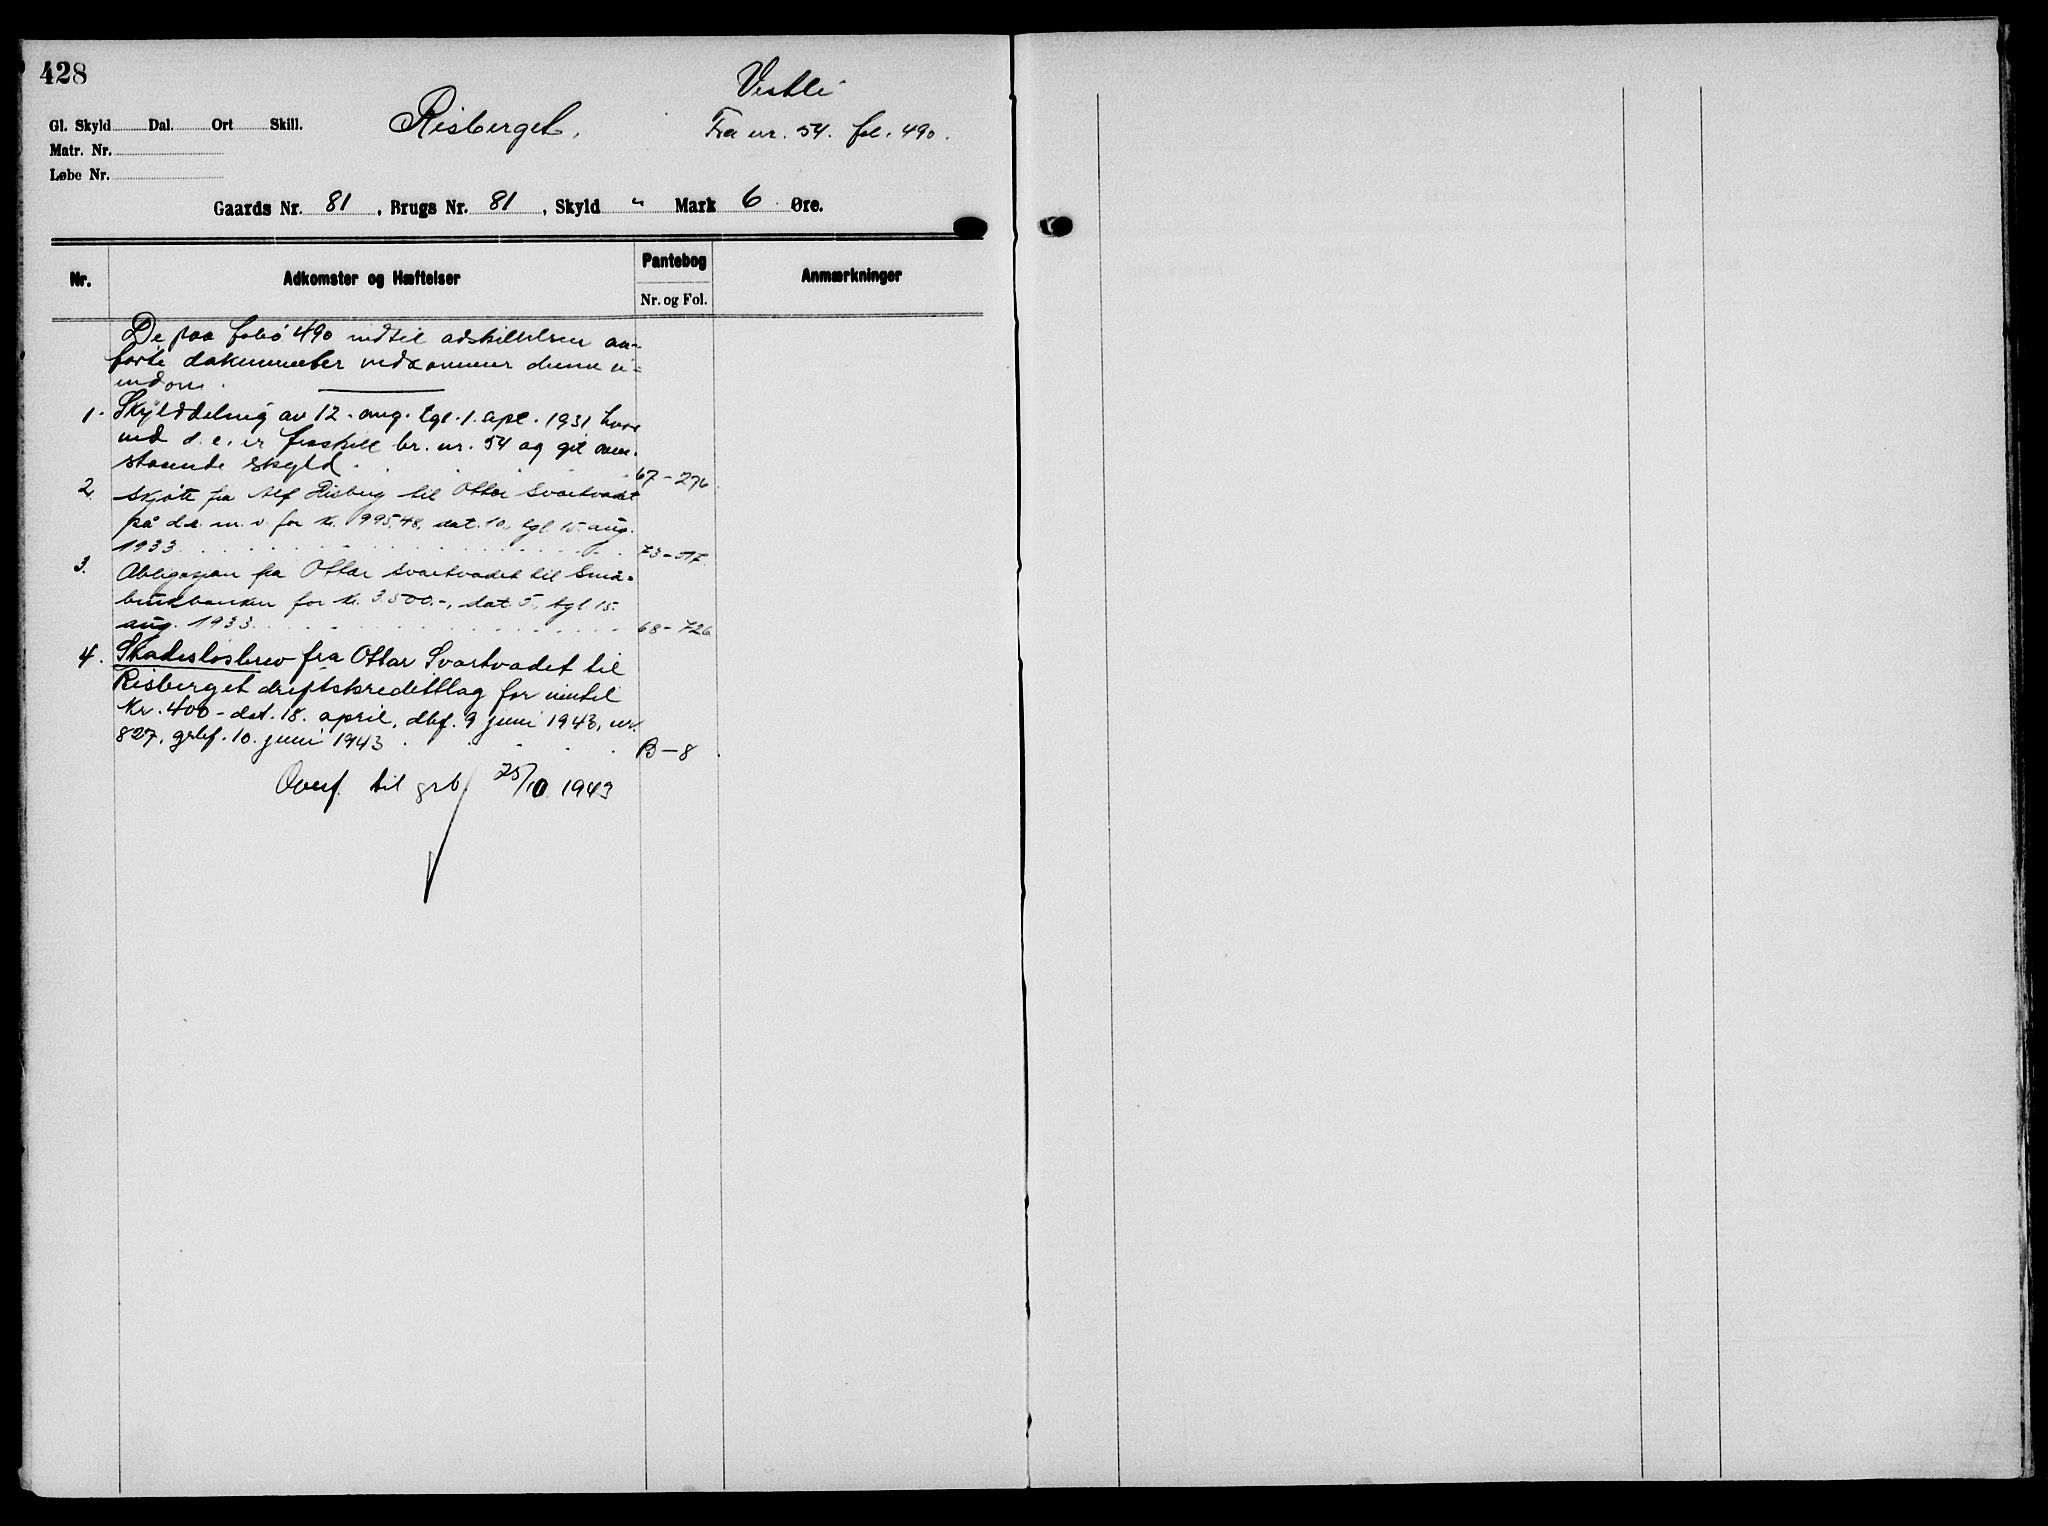 428
Vestli
Gl. Skyld Dal. Ort Skill.
Risberget.
Fra nr. 54. fol. 490.
Matr. Nr.
Løbe Nr.
Gaards Nr. 81, Brugs Nr. 81, Skyld " Mark 6 Øre.
Nr. Adkomster og Hæftelser Pantebog Anmærkninger
Nr. og Fol.
De paa folio 490 indtil adskillelsen an-
førte dokumenter vedkommer denne ei-
endom.
1. Skylddeling av 12. aug. tgl. 1. sept. 1931 hvor
ved d. e. er fraskilt br. nr. 54 og git oven-
staaende skyld. 67-276
2. Skjøte fra Alf Risberg til Ottar Svartvadet
på d.e. m. v. for kr. 995,48, dat. 10., tgl. 15. aug.
1933 73-517
3. Obligasjon fra Ottar Svartvadet til Små-
brukbanken for kr. 3.500.-, dat. 5., tgl. 15.
aug. 1933 68-726
4. Skadesløsbrev fra Ottar Svartvadet til
Risberget driftskredittlag for inntil
Kr. 400- dat. 18. april, dbf. 9 juni 1943, nr.
827, grbf. 10. juni 1943 B-8
Overf. til grb. 25/10 1943